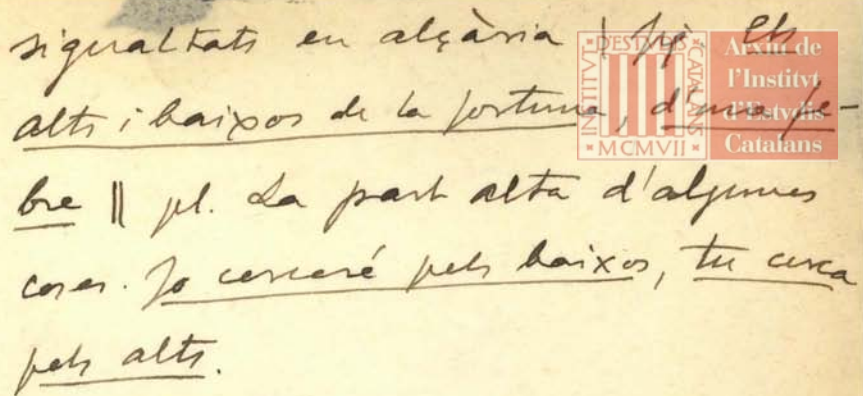 sigualtats en alçària | fig. Els
alts i baixos de la fortuna, d'una fe-
bre || pl. La part alta d'algunes
coses. Jo cercaré pels baixos, tu cerca
pels alts.
INSTITVT D'ESTVDIS CATALANS
MCMVII
Arxiu de
l'Institvt
d'Estvdis
Catalans